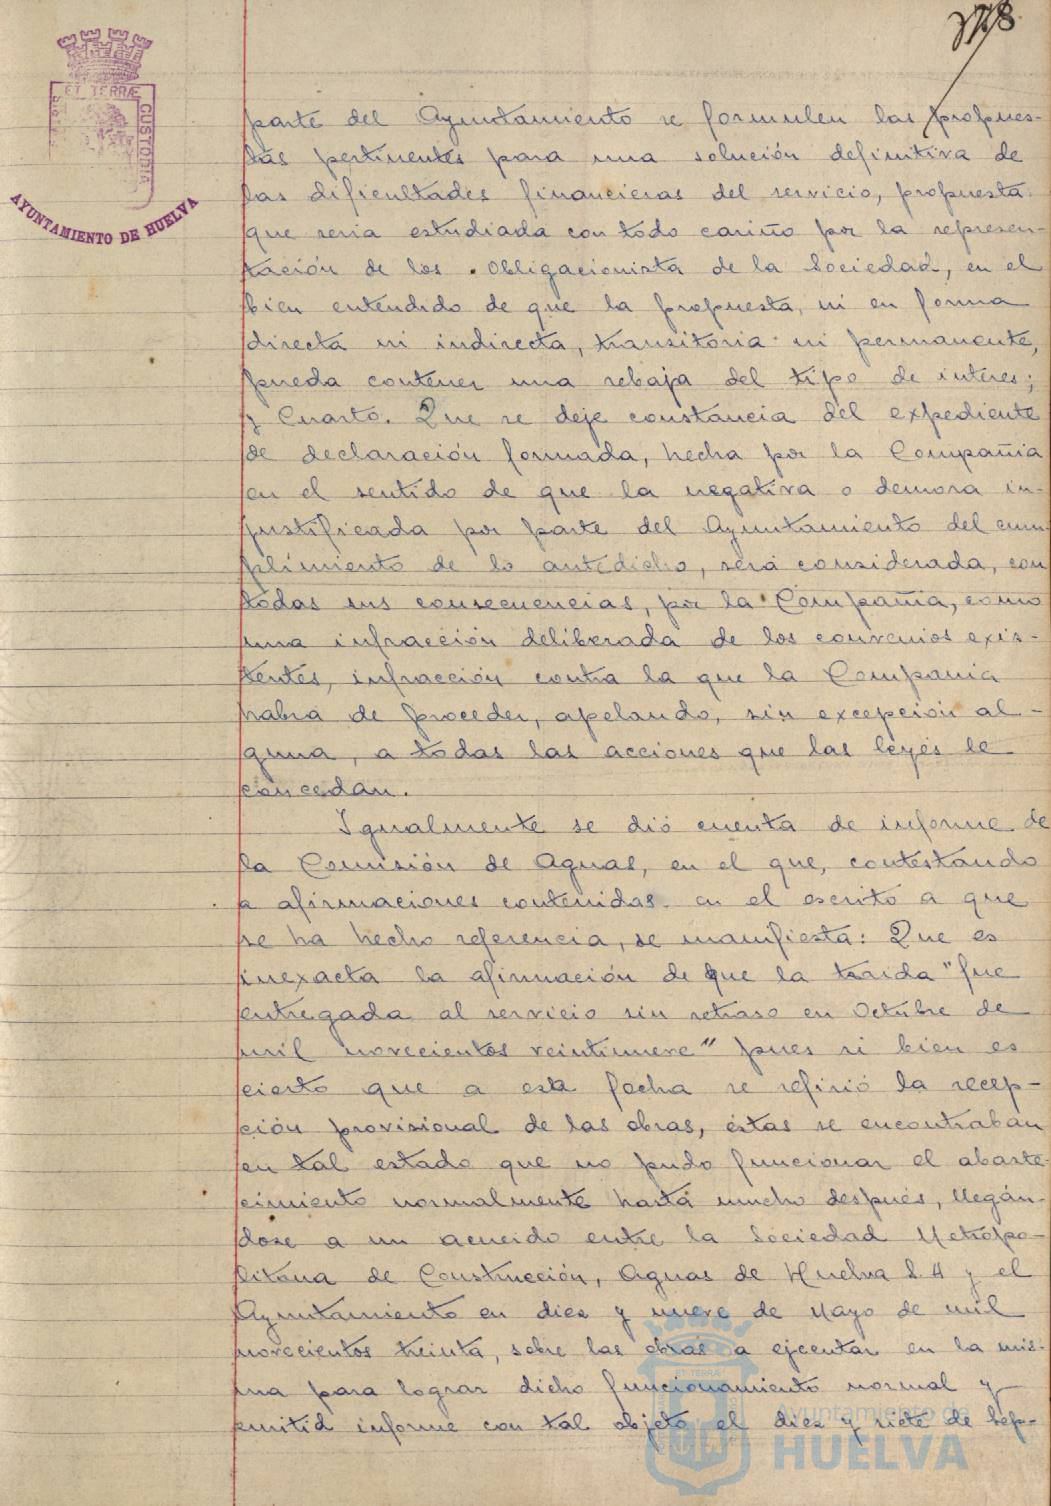 378
ET TERRÆ
CUSTODIA
AYUNTAMIENTO DE HUELVA
parte del Ayuntamiento se formulen las propues-
tas pertinentes para una solución definitiva de
las dificultades financieras del servicio, propuesta
que seria estudiada con todo cariño por la represen-
tación de los Obligacionista de la Sociedad, en el
bien entendido de que la propuesta, ni en forma
directa ni indirecta, transitoria ni permanente,
pueda contener una rebaja del tipo de interes;
y Cuarto. Que se deje constancia del expediente
de declaración formada, hecha por la Compañia
en el sentido de que la negativa o demora in-
justificada por parte del Ayuntamiento del cum-
plimiento de lo antedicho, será considerada, con
todas sus consecuencias, por la Compañia, como
una infracción deliberada de los convenios exis-
tentes, infracción contra la que la Compania
habra de proceder, apelando, sin excepción al-
guna, a todas las acciones que las leyes le
concedan.
Igualmente se dió cuenta de informe de
la Comisión de Aguas, en el que, contestando
a afirmaciones contenidas en el escrito a que
se ha hecho referencia, se manifiesta: Que es
inexacta la afirmación de que la traida "fue
entregada al servicio sin retraso en Octubre de
mil novecientos veintinueve" pues si bien es
cierto que a esta fecha se refirió la recep-
ción provisional de las obras, éstas se encontraban
en tal estado que no pudo funcionar el abaste-
cimiento normalmente hasta mucho después, llegán-
dose a un acuerdo entre la Sociedad Metropo-
litana de Construcción, Aguas de Huelva S.A y el
Ayuntamiento en diez y nueve de Mayo de mil
novecientos treinta, sobre las obras a ejecutar en la mis-
ma para lograr dicho funcionamiento normal y
emitid informe con tal objeto el diez y siete de Sep-
Ayuntamiento de
HUELVA